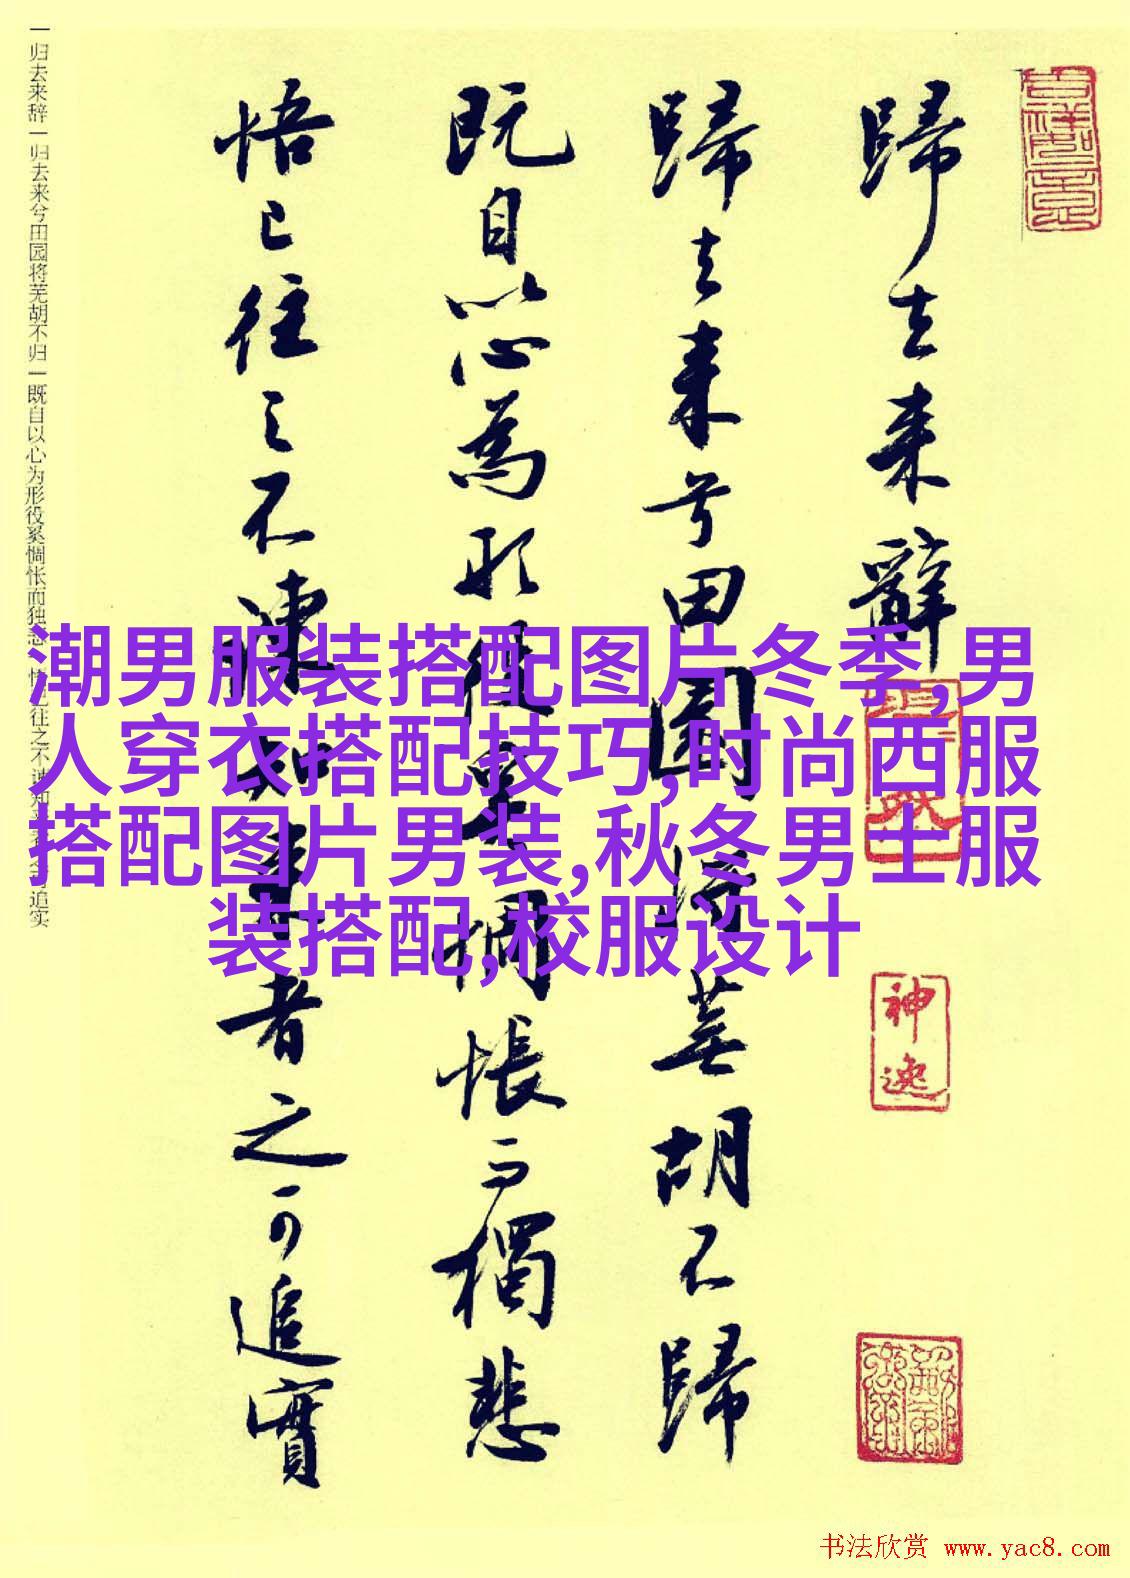 歸去来辭
歸去来兮田園将蕪胡不歸
既自以心為形役奚惆悵而獨悲
悟已往之不諫知来者之可追實
神逸
一归去来辞一归去来兮田园将芜胡不归一既自以心为形役奚惆怅而独悲 悟已往之不谏知来者之可追实
潮男服装搭配图片冬季,男
人穿衣搭配技巧,时尚西服
搭配图片男装,秋冬男士服
装搭配,校服设计
书法欣赏 www.yac8.com